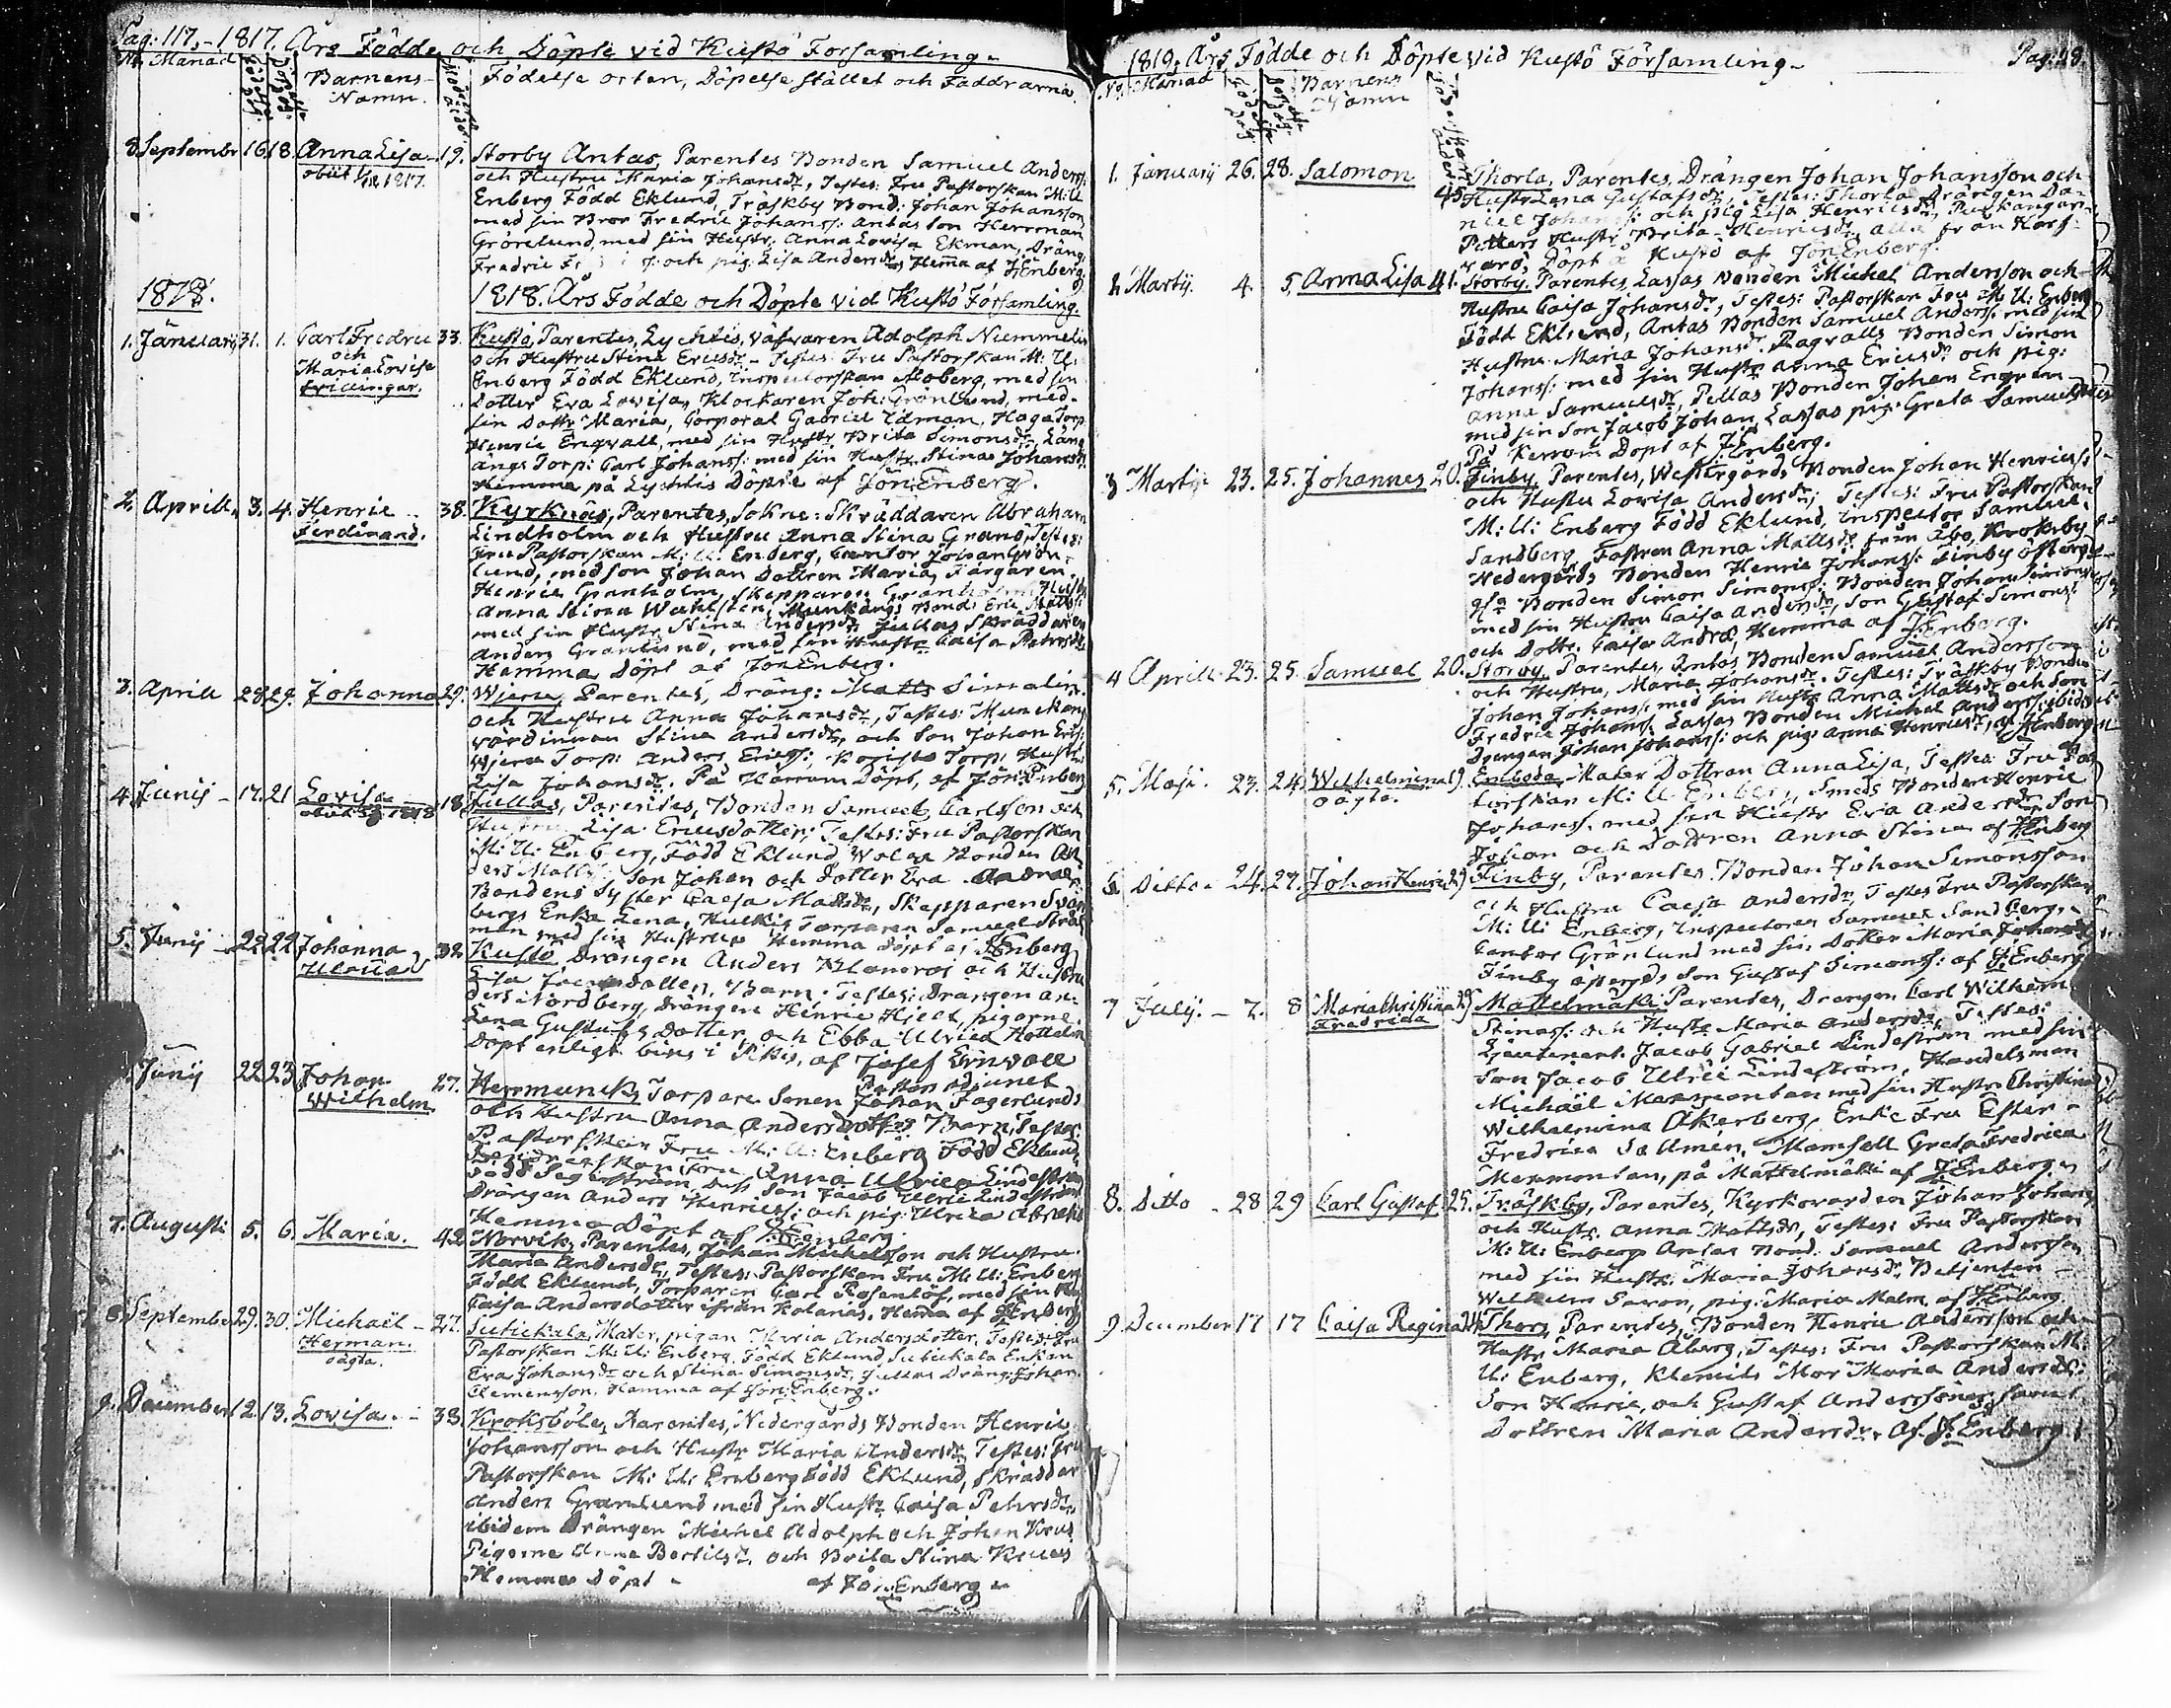 Pag: 117. - 1817. Års Födde och Döpte vid Kustö Forsamling.
No. Månad Barnens Namn. Födelse orten, Döpelse stället och Faddrarna.
8 Septembr 16 18. Anna Lisa 19. Storby Antas, Parentes Bonden Samuel Anders:
obiit 1817. och Hustru Maria Johansdr, Testes: Fru Pastorskan M: U
Enberg Född Eklund, Träskby Bond: Johan Johansson
med sin Bror Fredric Johanss: Antas son Herrman
Grönlund, med sin Hustr: Anna Lovisa Ekman, Dräng:
Fredric och pig: Lisa Andersdr Hema af J:Enberg.
1818. 1818. Års Födde och Döpte vid Kustö Församling.
1. Januarij 31. 1. Carl Fredric 33. Kustö, Parentes, Lychtis, Väfvaren Adolph Nummelin
och och Hustru Stina Ericsdr - Testes: Fru Pastorskan M: U:
Maria Lovisa Enberg Född Eklund, Inspectorskan Moberg, med sin
tvillingar. Dotter Eva Lovisa, Klockaren Joh: Grönlund, med
sin Dottr Maria, Corporal Gabriel Edman, Haga Torp:
Henric Engvall, med sin Hustr Brita Simonsdr, Läng
ängs Torp: Carl Johanss: med sin Hustr Stina Johansdr
Hemma på Lychtis Döpte af Jon:Enberg.
2. Aprill 3. 4. Henric 38. Kyrknäs, Parentes, Sokne: Skräddaren Abraham
Ferdinand. Lindholm och Hustru Anna Stina Granö, Testes:
Fru Pastorskan M: U: Enberg, Cantor Johan Grön-
lund, med son Johan Dottren Maria, Färgaren
Henric Granholm, Skepparen Granholms Hustru
Anna Stina Wahlsten, Munkängs Bond: Eric Matts:
med sin Hustr Stina Andersdr Jullas Skräddaren
Anders Granlund, med sin Hustr Caisa Petersdr
Hemma Döpt af Jon Enberg.
3. Aprill 28 29. Johanna 29. Wjeru, Parentes, Dräng: Matts Simelin
och Hustru Anna Johansdr, Testes: Munckäng
värdinnan Stina Andersdr, och Son Johan Erics:
Wjeru Torp: Anders Ericss:, Torp: Hustr:
Lisa Johansdr. På Harrom Döpt, af Jon:Enberg
4. Junij 17. 21 Lovisa 18. Jullas, Parentes, Bonden Samuel Carlsson och
obiit 1818 Hustru Lisa Ericsdotter, Testes: Fru Pastorskan
M: U: Enberg, Född Eklund Bonden An-
ders Matts: son Johan och Dotter Eva
Bondens Syster Caisa Mattsdr, Skepparen
bergs Enka Lena, Torparen Samuel
man med sin Hustru Hemma Döpt af J:Enberg
5. Junij 22 22 Johanna 32 Kustö Drängen Anders och Hustru
Ulrica Lisa Barn. Testes: Drängen An-
ders Nordberg, Drängen Henric Hjelt, pigorne
Lena Gustafs Dotter, och Ebba Ulrica
Döpt enligt bevis i Pikis, af Josef
Pastors Adjunct
Junij 22 23 Johan 27. Herrmunck, Torpare Sonen Johan Fagerlunds
Wilhelm och Hustru Anna Andersdotters Barn, Testes:
Pastorskan Fru M: U: Enberg Född Eklund,
Fru Anna Ulrica Lindeström
Född Segerström, Son Jacob Ulric Lindeström
Drängen Anders Henricss: och pig: Ulrica
Hemma Döpt af J:Enberg.
7. Augusti 5. 6. Maria. 42 Norvik, Parentes, Johan Michelsson och Hustru
Maria Andersdr, Testes: Pastorskan Fru M: U: Enberg
Född Eklund, Torparen Carl Rosenlöf, med sin
Caisa Andersdotter ifrån Kolanäs. Hema af J:Enberg
8. September 29. 30. Michaël 27. Sutickala, Mater, pigan Maria Andersdotter, Testes: Fru
Herman. Pastorskan M: U: Enberg, Född Eklund, Sutickala Enkan
oägta. Eva Johansdr och Stina Simonsdr, Jullas Dräng: Johan
Clemensson. Hemma af Jon:Enberg.
9. December 12. 13. Lovisa. 33. Kroksböle, Parentes, Nedergårds Bonden Henric
Johansson och Hustr Maria Andersdr Testes: Fru
Pastorskan M: U: Enberg Född Eklund, Skräddar
Anders Granlund med sin Hustr Caisa Pehrsdr
ibidem Drängen Michel Adolph och Johan
Pigorne Anna Bertilsdr, och Brita Stina
Hemma Döpt af Jon:Enberg
1819. Års Födde och Döpte vid Kustö Församling. Pag:
No. Månad Barnens Namn
1. Januarij 26. 28. Salomon 45 Thorla, Parentes, Drängen Johan Johansson och
Hustr Lena Gustafsdr, Testes: Thorla Drängen Da-
niel Johanss: och pig Lisa Henricsdr,
Petters Hustr Brita Henricsdr, alla från
Döpt å Kustö af Jon Enberg.
2. Martij. 4. 5. Anna Lisa 41. Storby, Parentes, Lassas Bonden Michel Andersson och
Hustru Caisa Johansdr, Testes: Pastorskan Fru M: U: Enberg
Född Eklund, Antas Bonden Samuel Anders: med sin
Hustru Maria Johansdr Ragvalls Bonden Simon
Johanss: med sin Hustr Anna Ericsdr och pig:
Anna Samuelsdr, Pellas Bonden Johan Engren
med sin Son Jacob Johan, Lassas pig: Greta Samuelsdr
På Harrom Döpt af J:Enberg.
3 Martij 23. 25. Johannes 20. Finby, Parentes, Westergårds Bonden Johan Henricss:
och Hustru Lovisa Andersdr, Testes: Fru Pastorskan
M: U: Enberg Född Eklund, Inspector Samuel
Sandberg, Fastren Anna Mattsdr från Åbo, Kroksby
Nedergårds Bonden Henric Johanss: Finby östergd
Bonden Simon Simonss: Bonden Johan Simonss:
med sin Hustru Caisa Andersdr, Son Gustaf Simonss:
och Dottr. Caisa Hemma af J:Enberg.
4 Aprill 23. 25. Samuel 20. Storby, Parentes, Antas Bonden Samuel Andersson
och Hustru, Maria Johansdr. Testes: Träskby Bonden
Johan Johanss: med sin Hustr Anna Mattsdr och Son
Fredric Johanss: Lassas Bonden Michel Anderss: ibidem
Drengen Johan Johanss: och pig: Anna Henricsdr, af J:Enberg
5. Maji. 23. 24. Wilhelmina Mater Dottren Anna Lisa, Testes Fru Pas-
oägta. torskan M: U: Enberg, Smeds Bonden Henric
Johanss: med sin Hustr Eva Andersdr Son
Johan och Dottren Anna Stina af J:Enberg
6. Ditto 24. 27. Johan Henric Finby, Parentes, Bonden Johan Simonsson
och Hustru Caisa Andersdr, Testes Fru Pastorskan
M: U: Enberg, Inspectoren Samuel Sandberg,
Cantor Grönlund med sin Dotter Maria
Finby ösergds Son Gustaf Simonss: af J:Enberg
7 Julij. 7. 8 Maria Christina Mattelmäki Parentes, Drengen Carl Wilhelm
Fredrica och Hustr Maria Andersdr, Testes:
Lieutenant Jacob Gabriel Lindeström med sin
Son Jacob Ulric Lindeström, Handelsman
Michaël Mexmontan med sin Hustr Christina
Wilhelmina Åkerberg, Enke Fru Ester
Fredrica Mamsell Greta Fredrica
Mexmontan, på Mattelmäki af J:Enberg.
8. Ditto 28 29 Carl Gustaf 25. Träskby, Parentes, Kyrkovärden Johan Johans
och Hustr. Anna Mattsdr, Testes: Fru Pastorskan
M: U: Enberg Antas Bond: Samuel Andersson
med sin Hustr: Maria Johansdr Betjenten
Wilhelm pig: Maria Malm. af J:Enberg
9 December 17 17 Caisa Regina Thors, Parentes, Bonden Henric Andersson och
Hustr Maria Åberg, Testes: Fru Pastorskan M:
U: Enberg, Klemets Mor Maria Andersdr:
Son Henric, och Gustaf Anderssöner samt
Dottren Maria Andersdr. af J:Enberg